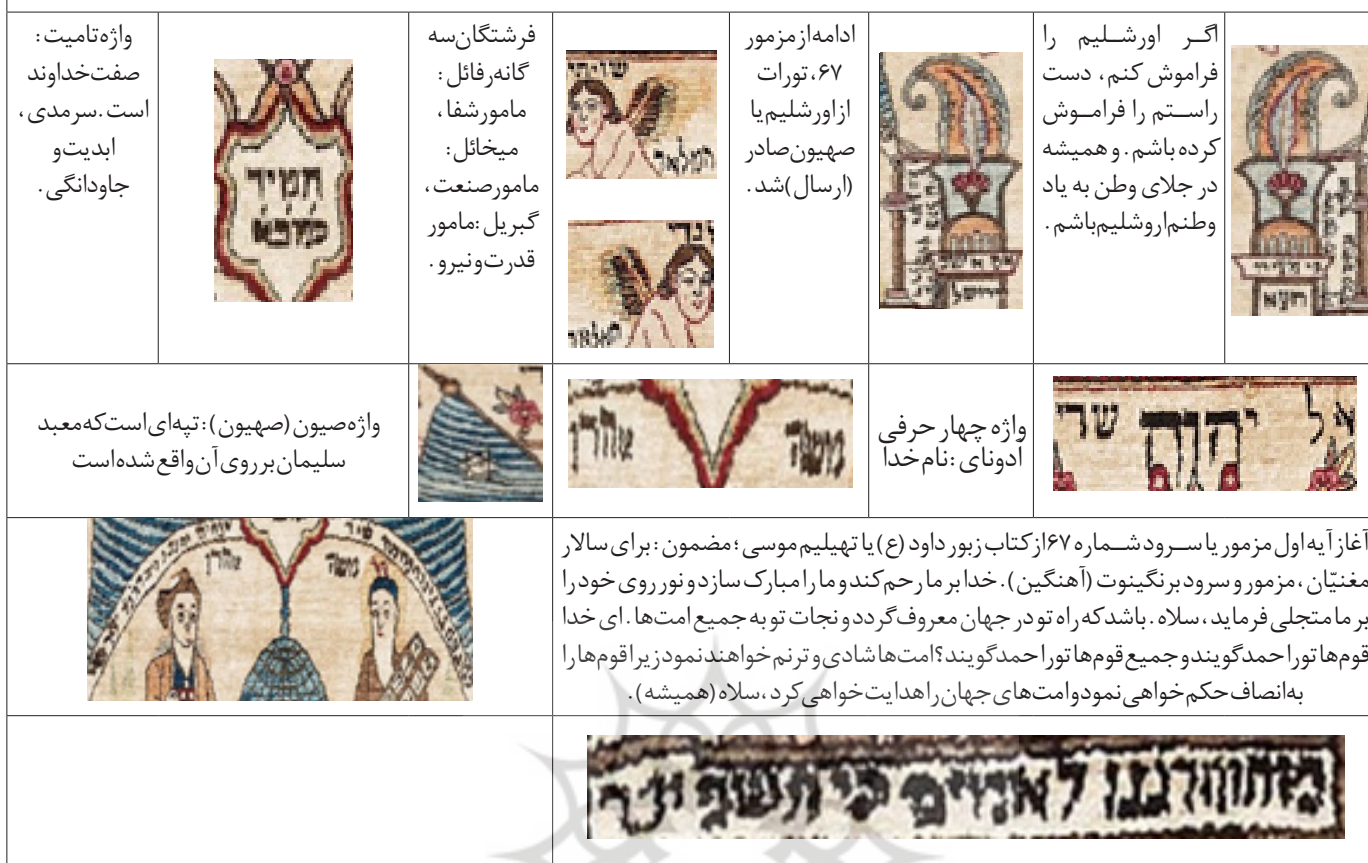 اگر اورشلیم را
فراموش کنم، دست
راستم را فراموش
کرده باشم. و همیشه
در جلای وطن به یاد
وطنم اروشلیم باشم.
ادامه از مزمور
۶۷، تورات
از اورشلیم یا
صهیون صادر
(ارسال) شد.
המלאך
فرشتگان سه
گانه رفائل:
مامور شفا،
میخائل:
مامور صنعت،
گبریل: مامور
قدرت و نیرو.
תמיד
واژه تامیت:
صفت خداوند
است. سرمدی،
ابدیت و
جاودانگی.
יהוה
واژه چهار حرفی
ادونای: نام خدا
משה אהרן
واژه صیون (صهیون): تپه‌ای است که معبد
سلیمان بر روی آن واقع شده است
آغاز آیه اول مزمور یا سرود شماره ۶۷ از کتاب زبور داود (ع) یا تهیلیم موسی؛ مضمون: برای سالار
مغنیّان، مزمور و سرود بر نگینوت (آهنگین). خدا بر ما رحم کند و ما را مبارک سازد و نور روی خود را
بر ما متجلی فرماید، سلاه. باشد که راه تو در جهان معروف گردد و نجات تو به جمیع امت‌ها. ای خدا
قوم‌ها تو را حمد گویند و جمیع قوم‌ها تو را حمد گویند؟ امت‌ها شادی و ترنم خواهند نمود زیرا قوم‌ها را
به انصاف حکم خواهی نمود و امت‌های جهان را هدایت خواهی کرد، سلاه (همیشه).
משה אהרן
לאמים כי